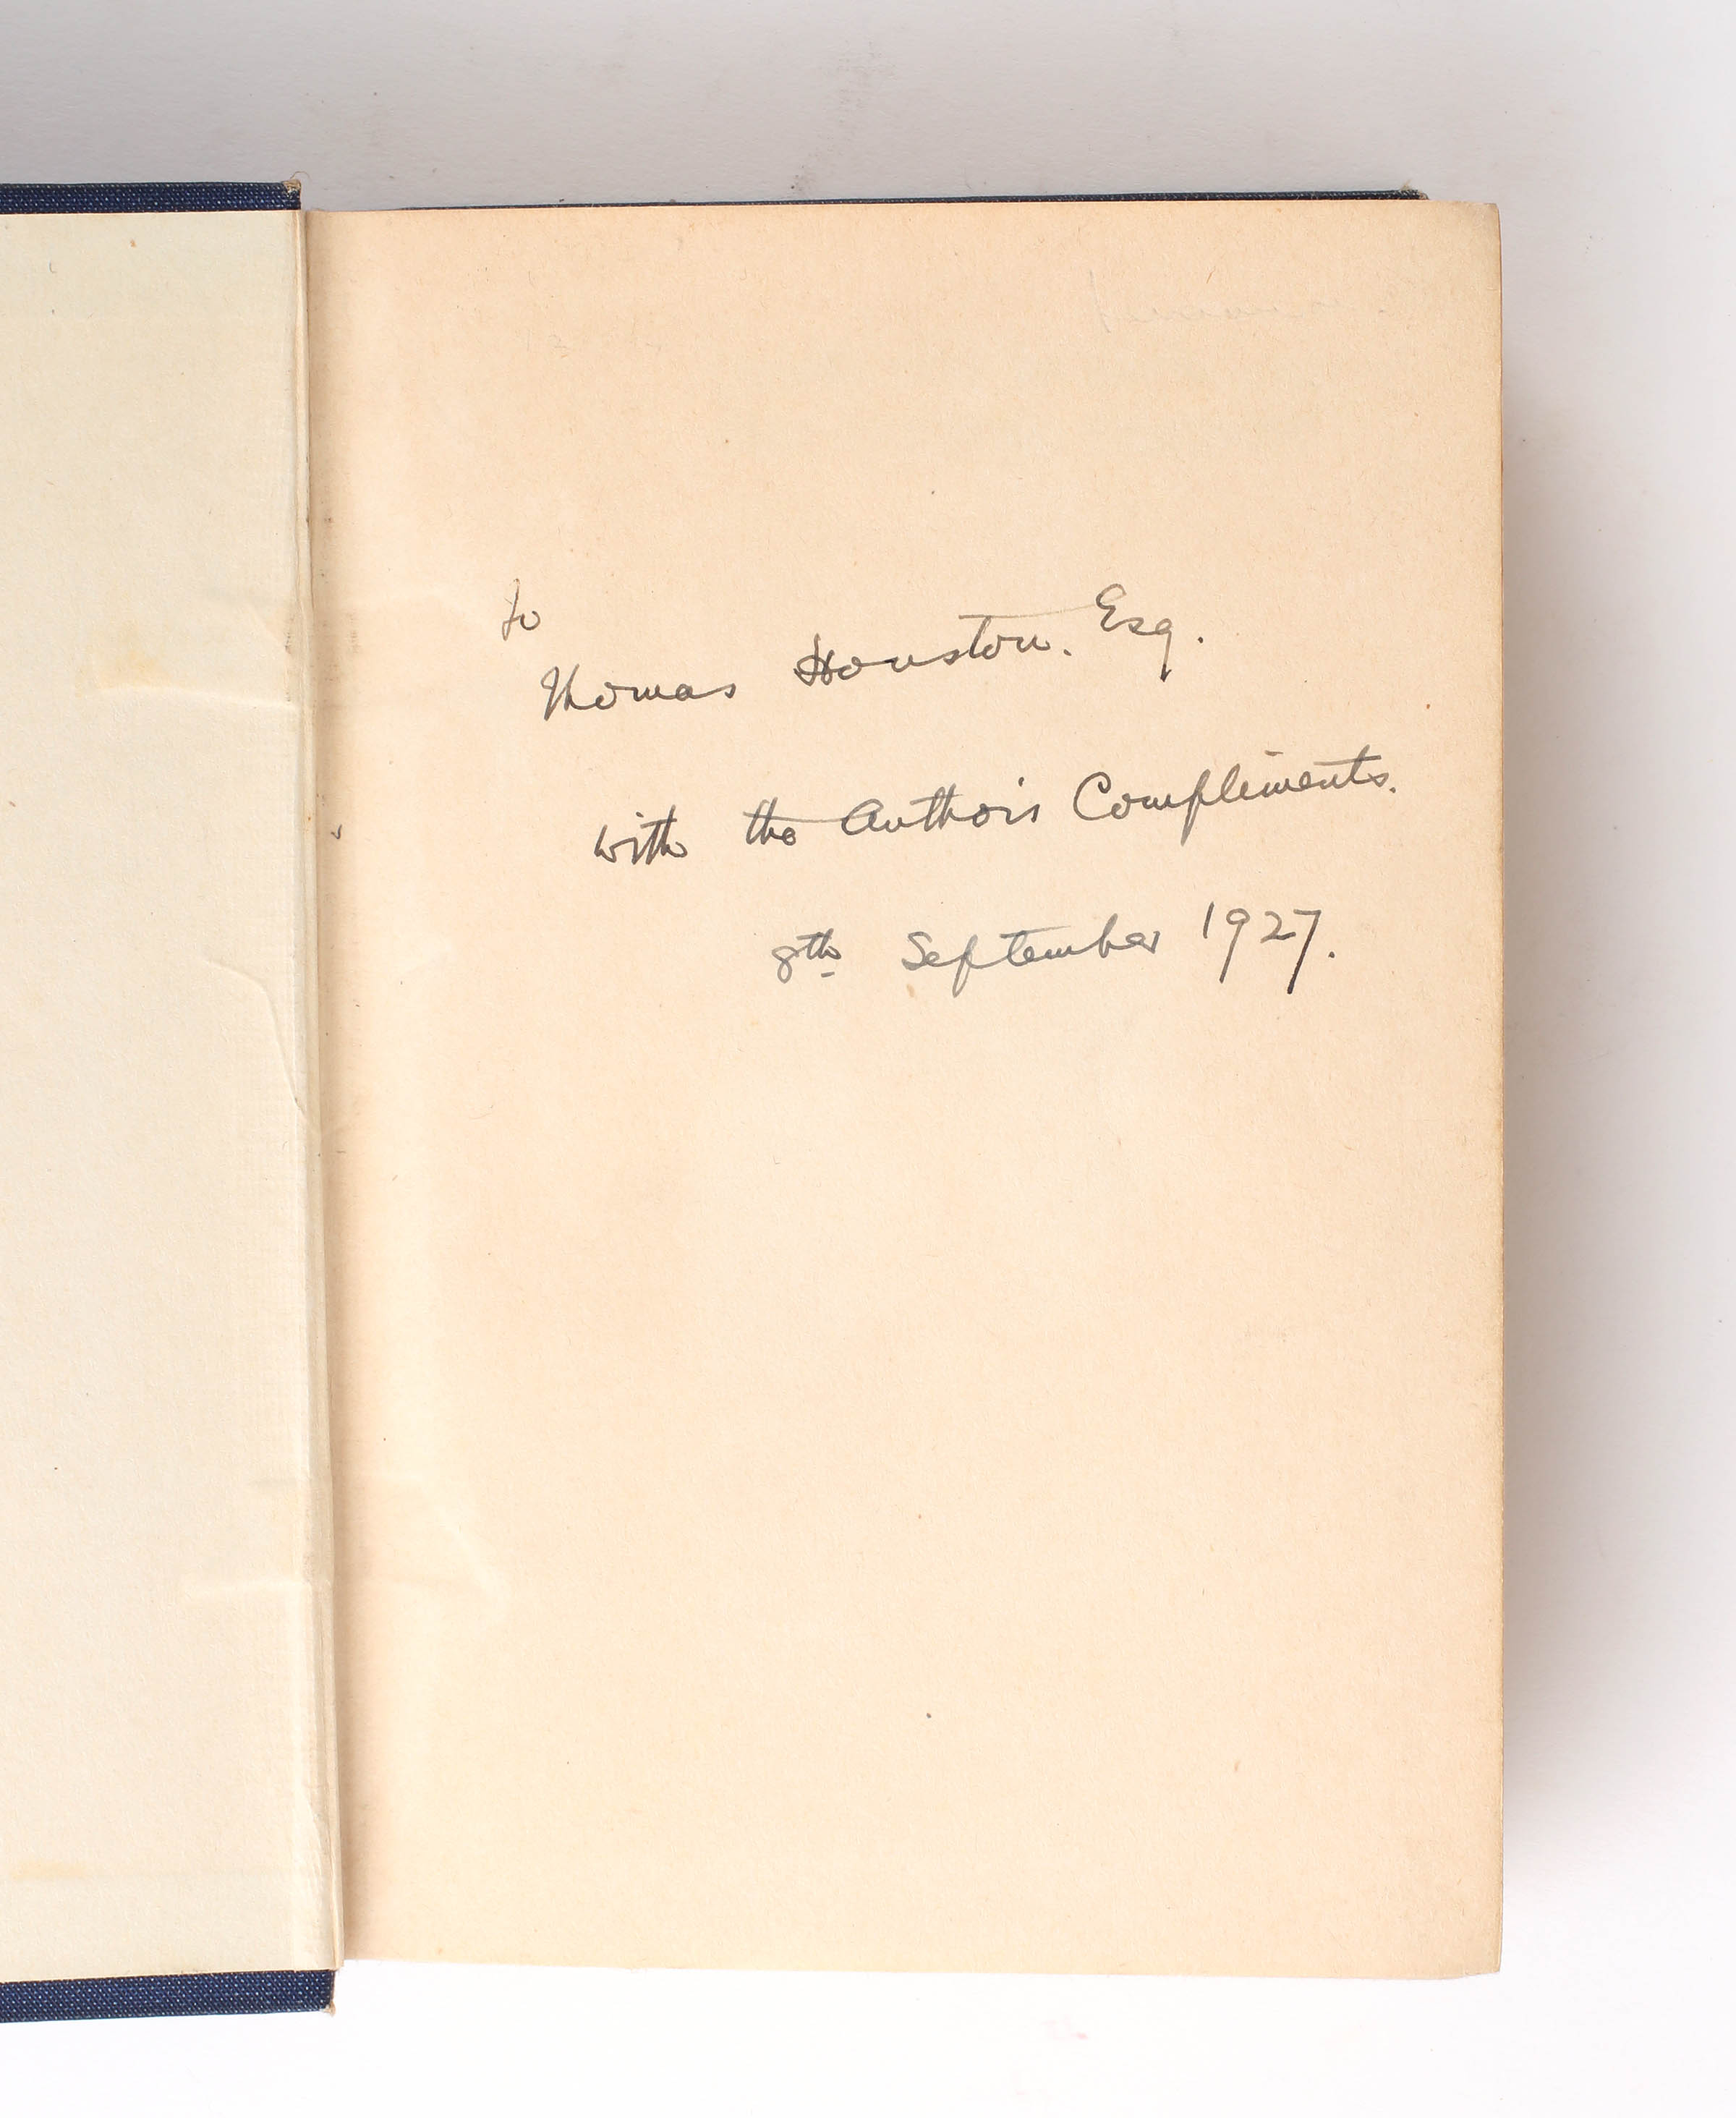 to
Thomas Houston. Esq.
with the Authors Compliments.
8th September 1927.